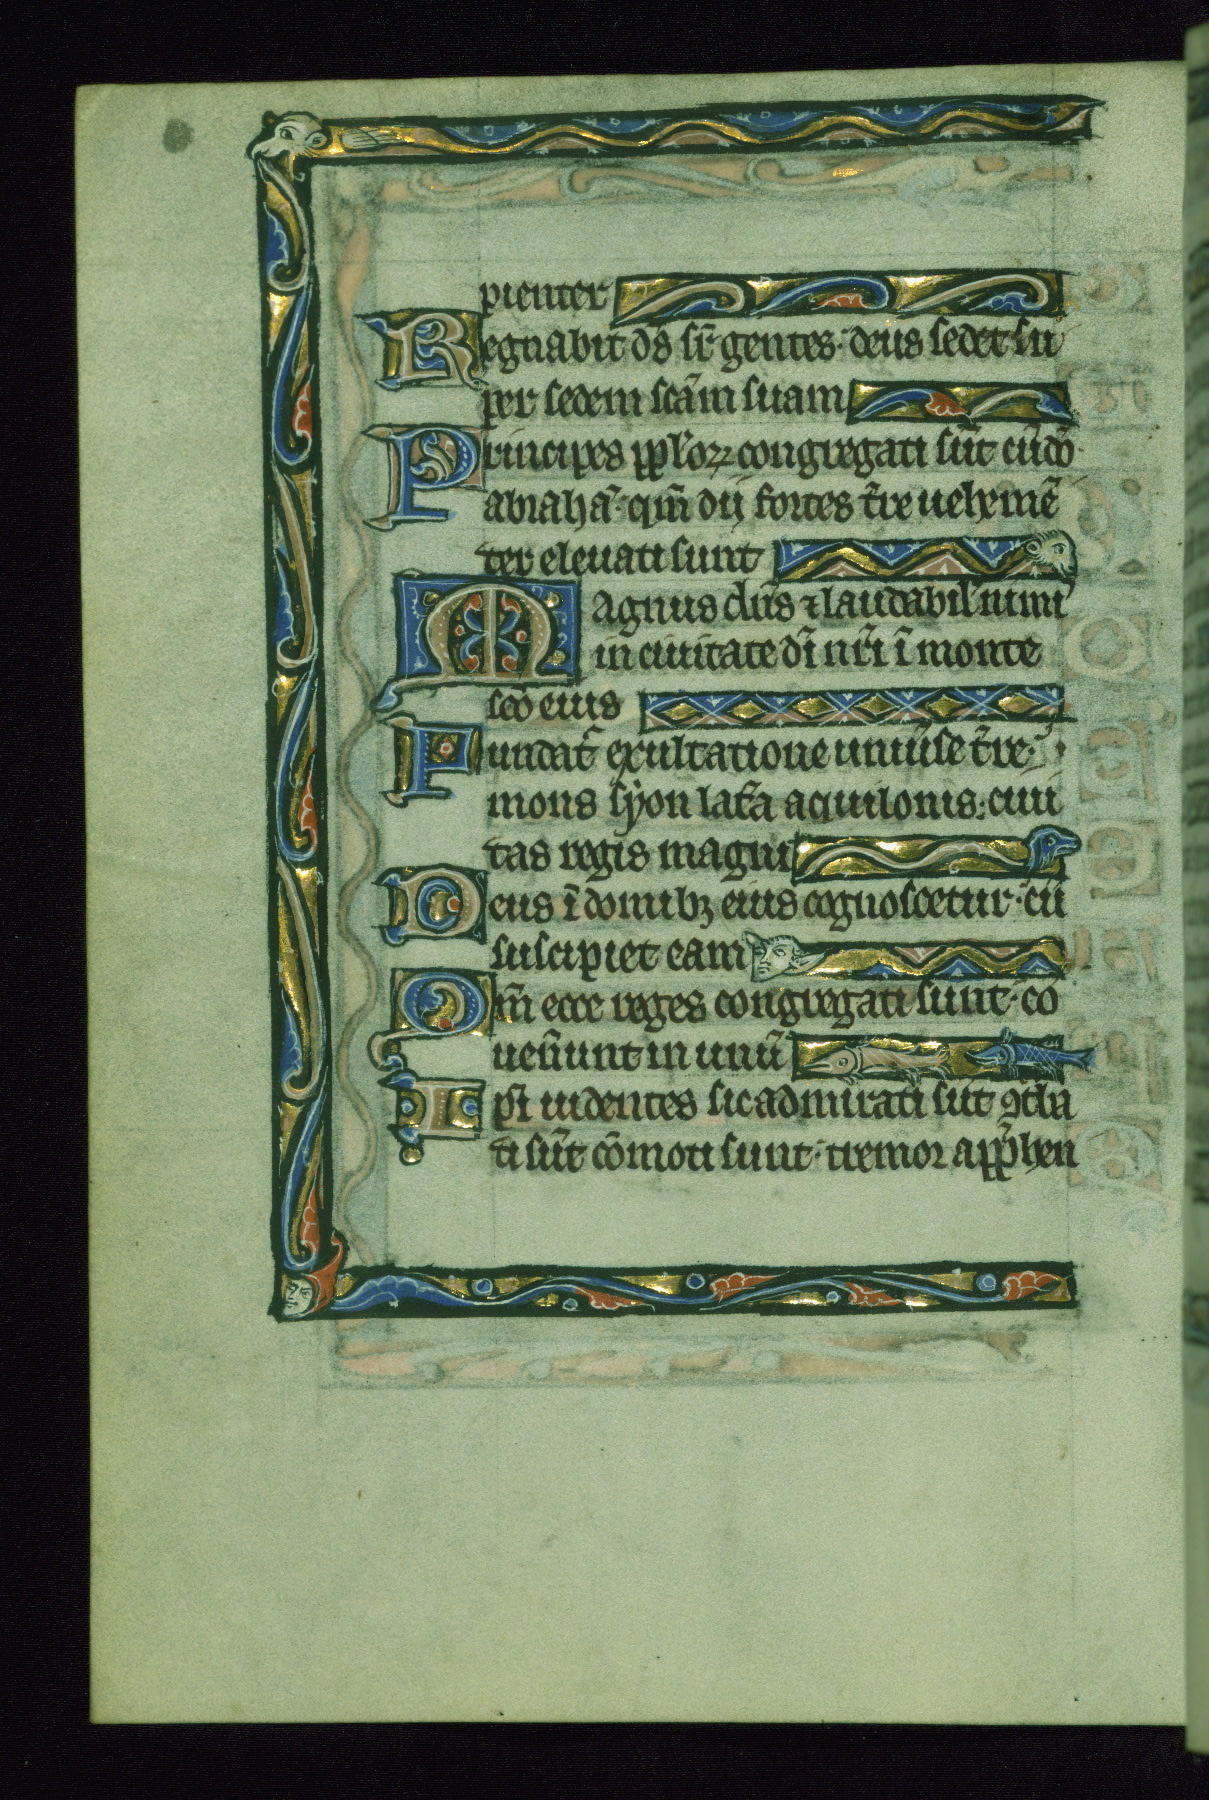 pienter
Regnabit ds̄ sr̄ gentes· deus sedet su
per sedem scām suam
Principes pplōꝝ congregati sūt cū dō
abrahā· qm̄ dij fortes tr̄re uehemē
ter eleuati sunt
Magnus dn̄s ⁊ laudabil' nimi
in ciuitate dī nr̄i ī monte
scō eius
Fundat᷑ exultatione uniūse tr̄re·
mons syon latr̄a aquilonis· ciui
tas regis magni
Deus ī domibꝫ eius cognoscetur· cū
suscipiet eam
Qm̄ ecce reges congregati sunt· cō
uen̄unt in unū
Ipsi uidentes sic admirati sūt ꝯt̾ba
ti sūt cōmoti sunt· tremor app̾hen